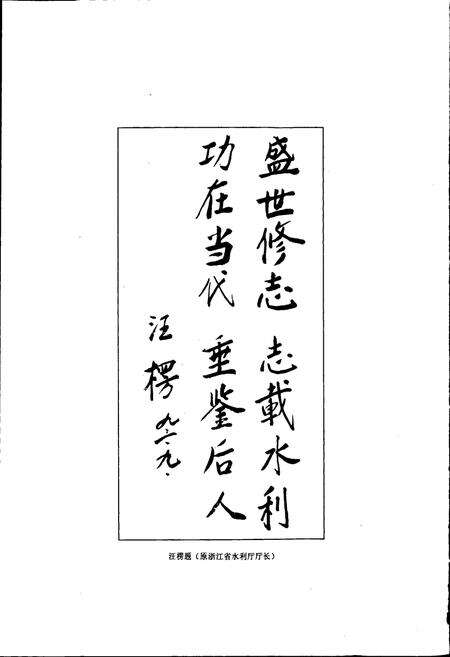 盛世修志 志載水利
功在当代 垂鉴后人
汪楞 九六.九.
汪楞题（原浙江省水利厅厅长）